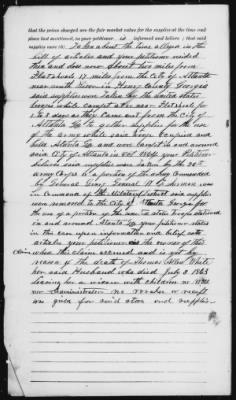 that the prices charged are the fair market value for the supplies at the time and
place last mentioned, as your petitioner is informed and believes; that said
supplies were
the time alleged in the
bill of articles and your petitioner resided
then and does now about two miles from
Flat Shoals 17 miles from the City of Atlanta
near south River in Henry County Georgia
said supplies were taken by the united states
troops while camped at or near Flat Shoals for
days as they came out from the City of
Atlanta Ga to gather supplies for the use
of the army while said troops occupied and
held Atlanta Ga and were camped in and around
said City of Atlanta in 1864 your Petitioner
said supplies were taken by the 20th
army Corps a portion of the army Commanded
by General Sherman
in Command of the Military District said supplies
was removed to the City of Atlanta Georgia for
the use of a portion of the united states troops stationed
in and around Atlanta Ga your petitioner states
in this case upon information and belief
your petitioner is the owner of this
claim when this claim accrued and is yet by
reason of the death of Thomas White
her said Husband who died July 3 1863
leaving her a widow with children
no Administration no voucher or receipt
was given for said stores and supplies